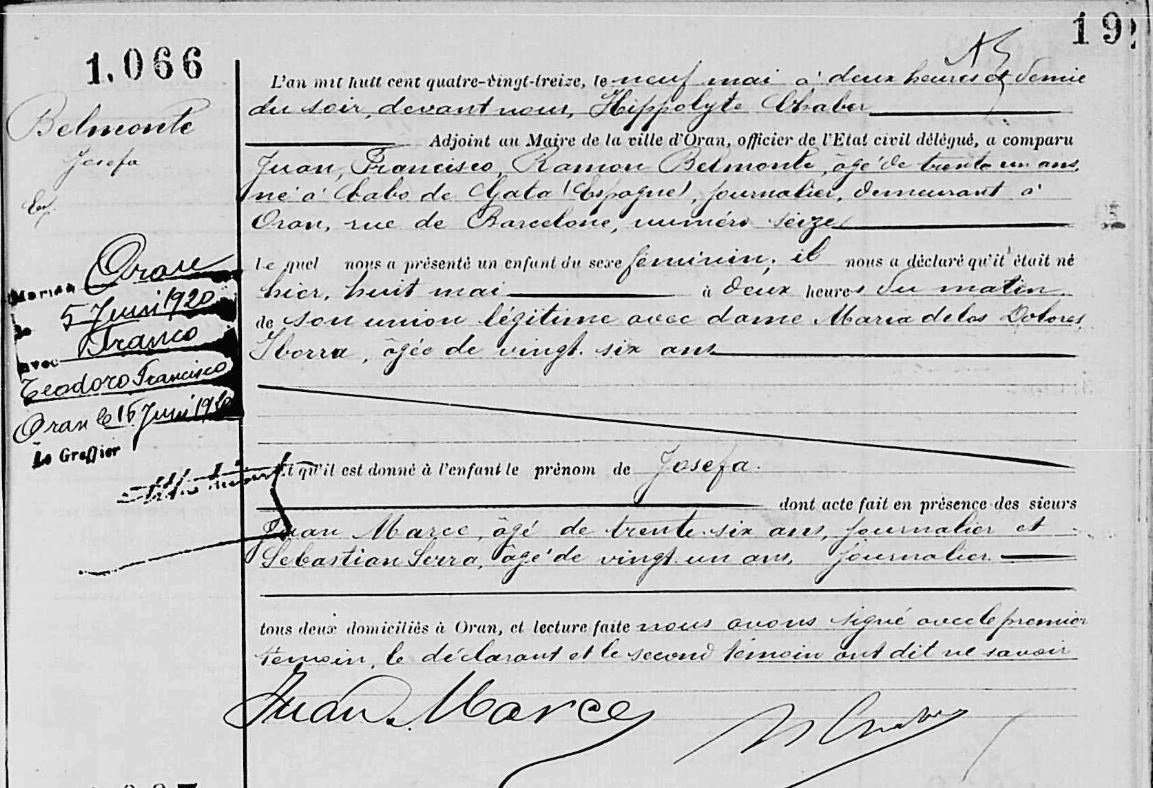 19
1.066
Belmonte
Josefa
L'an mil huit cent quatre-vingt-treize, le neuf mai à deux heures et demie
du soir, devant nous, Hippolyte Chaber
Adjoint au Maire de la ville d'Oran, officier de l'Etat civil délégué, a comparu
Juan, Francisco, Ramon Belmonte, âgé de trente un ans,
né à Cabo de Gata (Espagne), journalier, demeurant à
Oran, rue de Barcelone, numéro seize
Le quel nous a présenté un enfant du sexe féminin; il nous a déclaré qu'il était né
hier, huit mai à deux heures du matin
de son union légitime avec dame Maria de los Dolores
Iborra, âgée de vingt six ans
Oran
5 Juin 1920
avec Franco
Teodoro Francisco
Oran le 16 Juin 1920
Le Greffier
Et qu'il est donné à l'enfant le prénom de Josefa.
dont acte fait en présence des sieurs
Juan Marce, âgé de trente six ans, journalier et
Sebastian Serra, âgé de vingt un ans, journalier
tous deux domiciliés à Oran, et lecture faite nous avons signé avec le premier
témoin, le déclarant et le second témoin ont dit ne savoir
Juan Marce